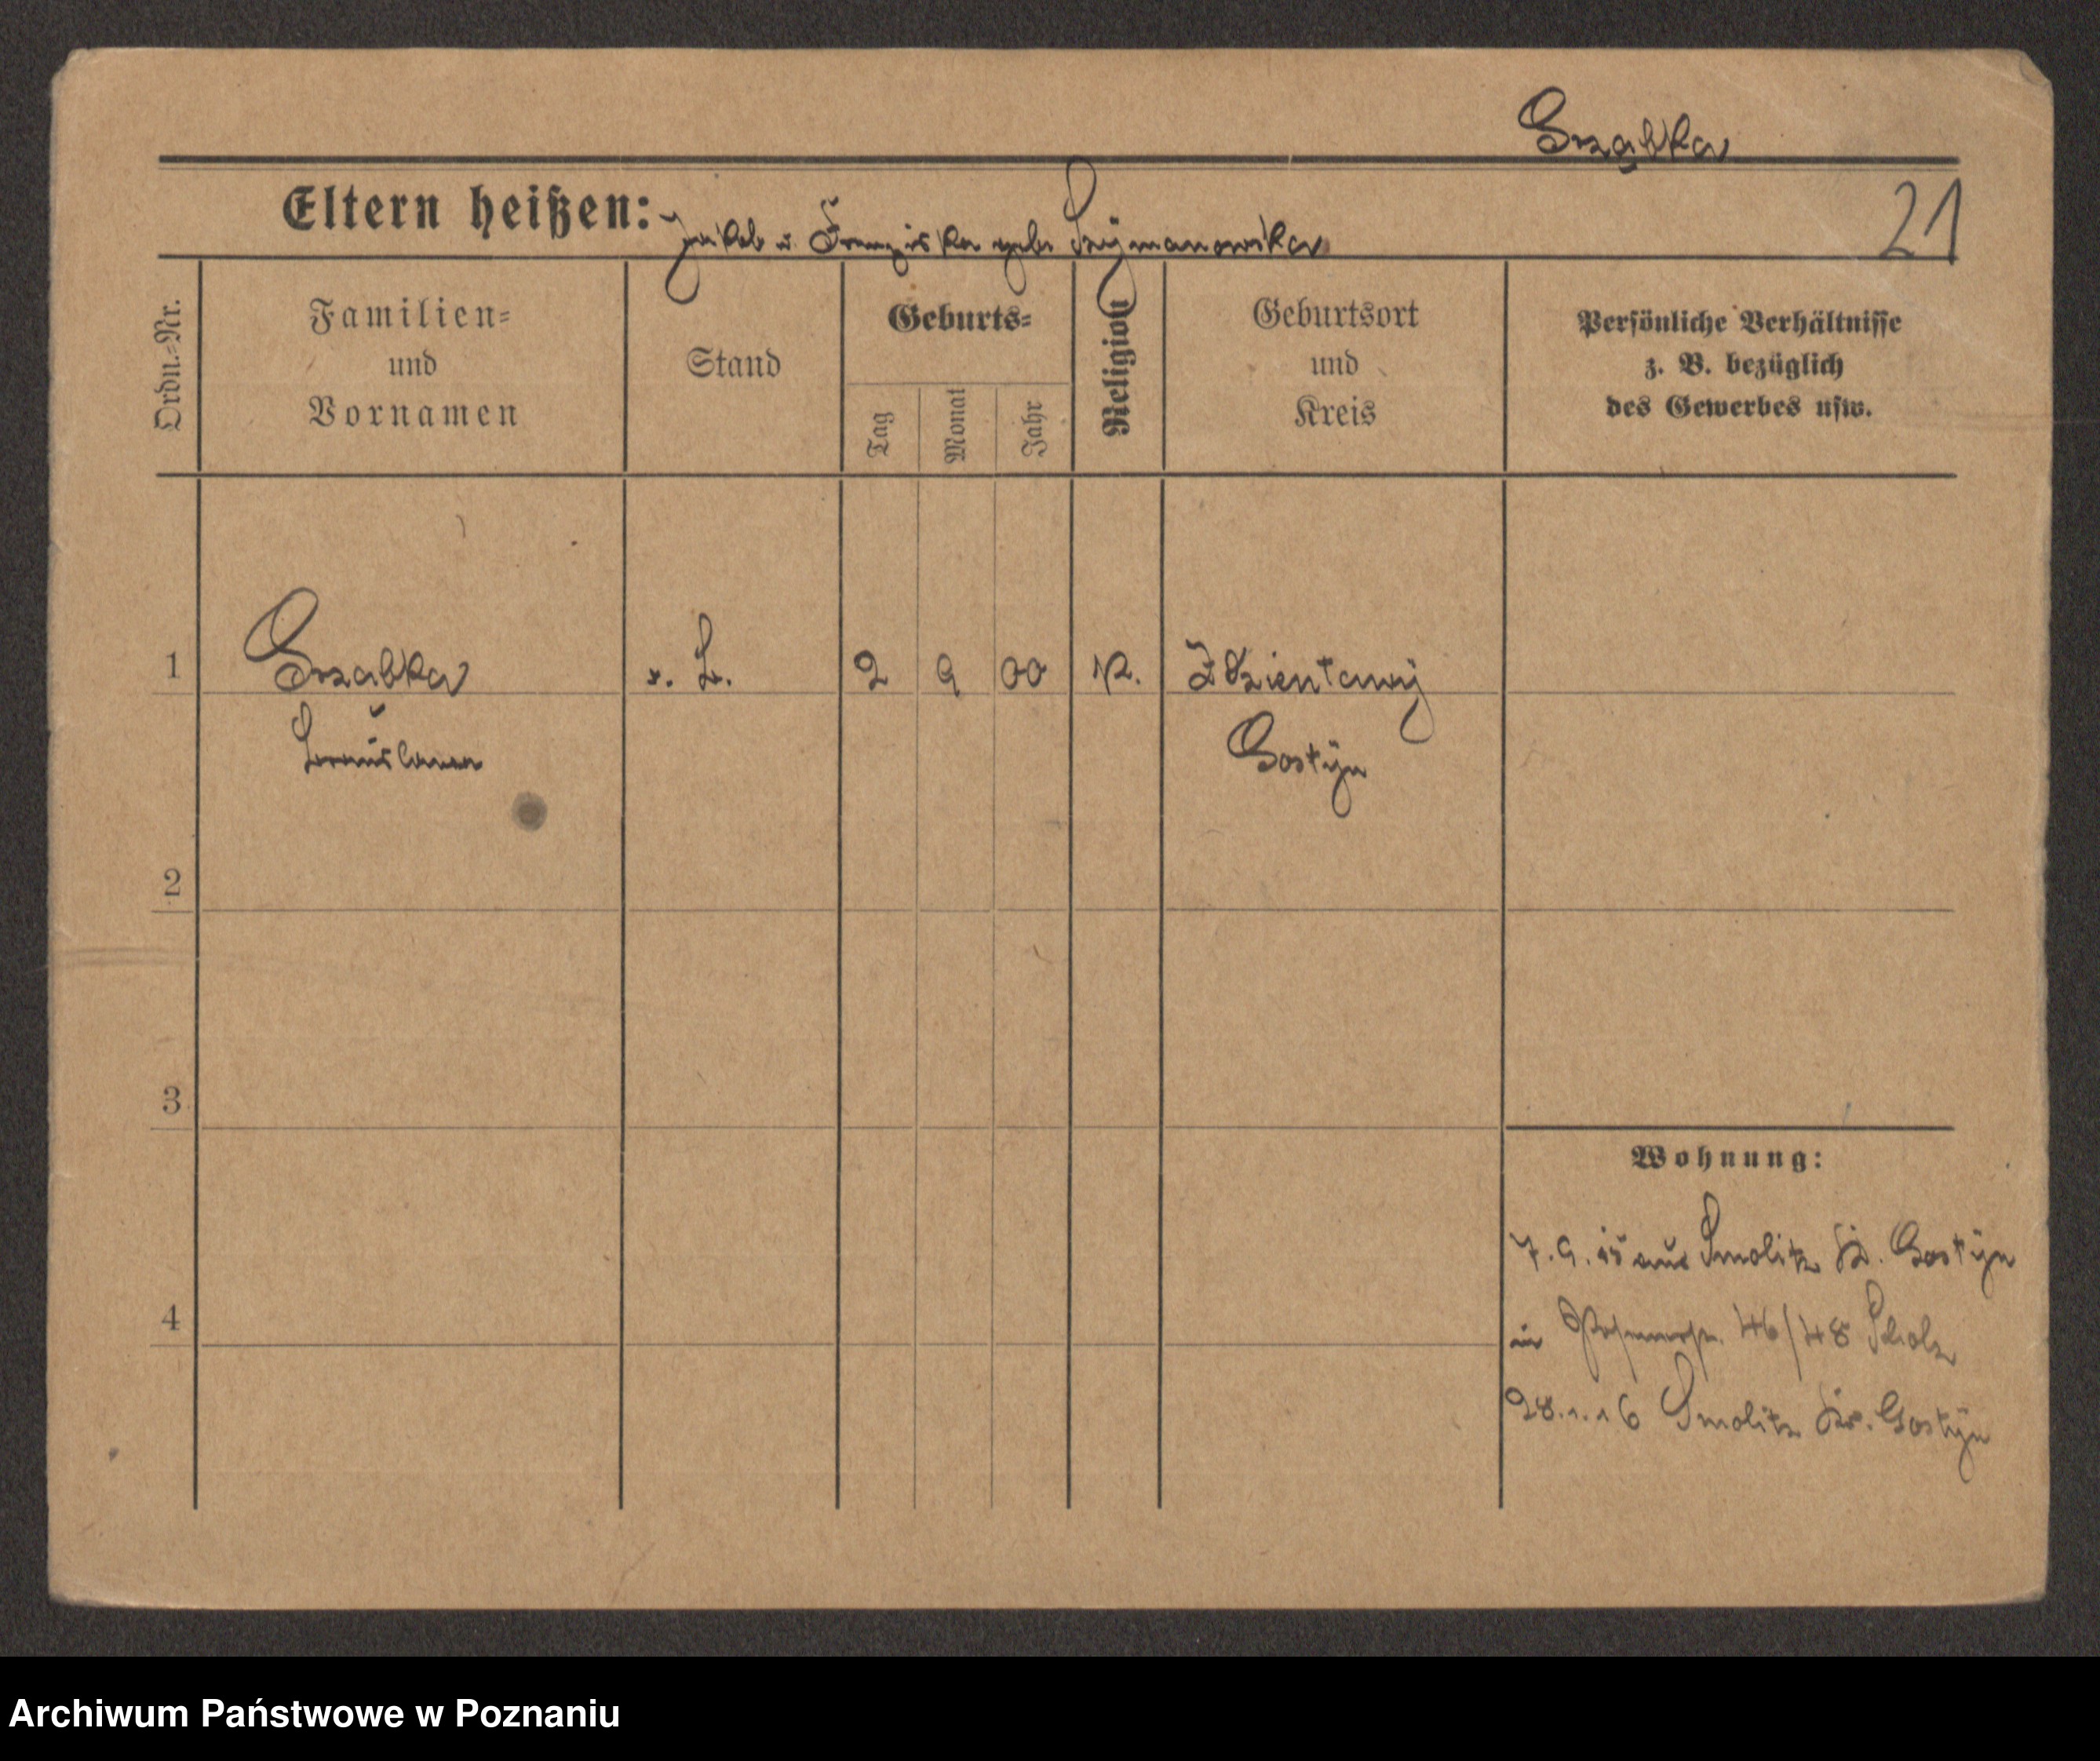 Grząbka
Eltern heißen: Jakob u. Franziska geb. Szÿmanowska
21
Ordn.-Nr.
Familien-
und
Vornamen
Stand
Geburts-
Tag
Monat
Jahr
Religion
Geburtsort
und
Kreis
Persönliche Verhältnisse
z. B. bezüglich
des Gewerbes usw.
1 Grzabka L. 2 9 00 K. Zdzientawÿ
Gostÿn
2
3
Wohnung:
7. 9. 15 aus Smolitz Kr. Gostÿn
4
in 46/48 Scholz
28. 1. 16 Smolitz Kr. Gostÿn
Archiwum Państwowe w Poznaniu